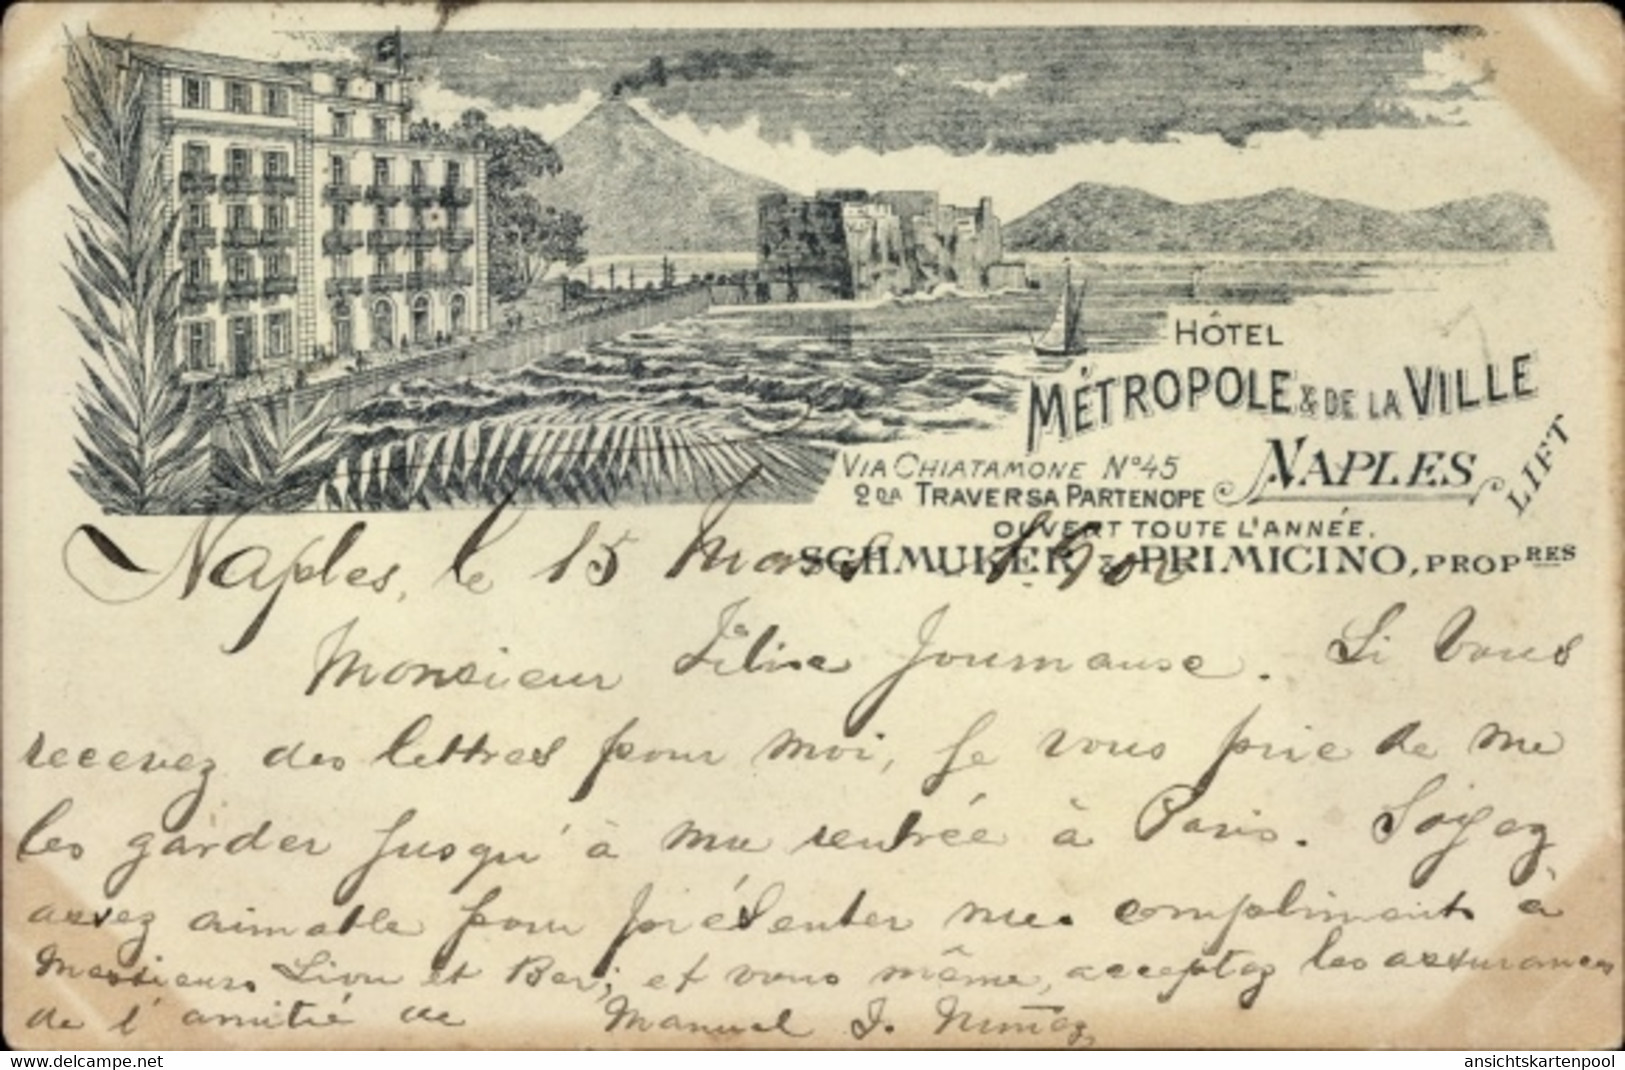 HÔTEL
MÉTROPOLE & DE LA VILLE
VIA CHIATAMONE Nº 45
2DA TRAVERSA PARTENOPE
NAPLES
LIFT
OUVERT TOUTE L'ANNÉE.
SCHMUKER & PRIMICINO, PROPRES
Naples, le 15 Mars 1902
Monsieur Si Vous
recevez des lettres pour moi, je vous prie de me
les garder jusqu'à ma rentrée à Paris. Soyez
assez aimable pour présenter mes compliments à
Messieurs et vous même, acceptez les assurances
de l'amitié de Manuel J. Nuñez
delcampe.net
ansichtskartenpool